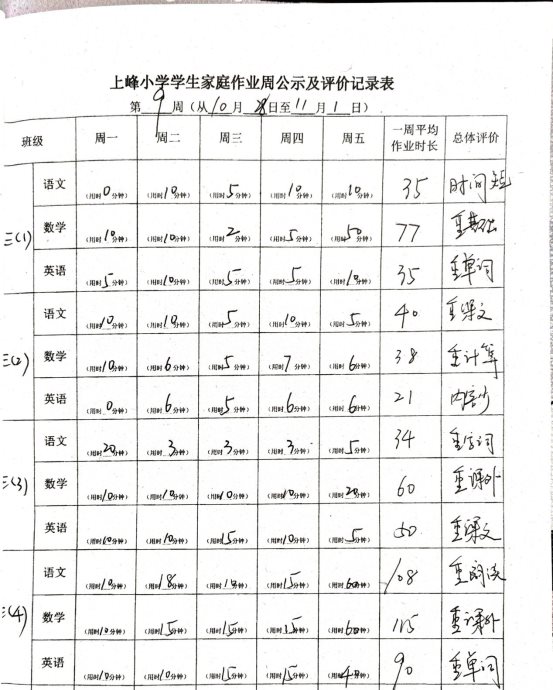 上峰小学学生家庭作业周公示及评价记录表
第9周（从10月28日至11月1日）
班级 周一 周二 周三 周四 周五 一周平均作业时长 总体评价
三(1) 语文 （用时0分钟） （用时10分钟） （用时5分钟） （用时10分钟） （用时10分钟） 35 时间短
数学 （用时10分钟） （用时10分钟） （用时2分钟） （用时5分钟） （用时50分钟） 77 重基础
英语 （用时5分钟） （用时10分钟） （用时5分钟） （用时5分钟） （用时10分钟） 35 重单词
三(2) 语文 （用时10分钟） （用时10分钟） （用时5分钟） （用时10分钟） （用时5分钟） 40 重课文
数学 （用时10分钟） （用时6分钟） （用时5分钟） （用时7分钟） （用时6分钟） 38 重计算
英语 （用时0分钟） （用时6分钟） （用时5分钟） （用时6分钟） （用时6分钟） 21 内容少
三(3) 语文 （用时20分钟） （用时3分钟） （用时3分钟） （用时3分钟） （用时5分钟） 34 重字词
数学 （用时10分钟） （用时10分钟） （用时10分钟） （用时10分钟） （用时20分钟） 60 重课外
英语 （用时10分钟） （用时10分钟） （用时15分钟） （用时10分钟） （用时5分钟） 50 重课文
三(4) 语文 （用时10分钟） （用时18分钟） （用时10分钟） （用时15分钟） （用时60分钟） 108 重
数学 （用时10分钟） （用时15分钟） （用时15分钟） （用时15分钟） （用时60分钟） 115 重课外
英语 （用时10分钟） （用时10分钟） （用时15分钟） （用时15分钟） （用时40分钟） 90 重单词